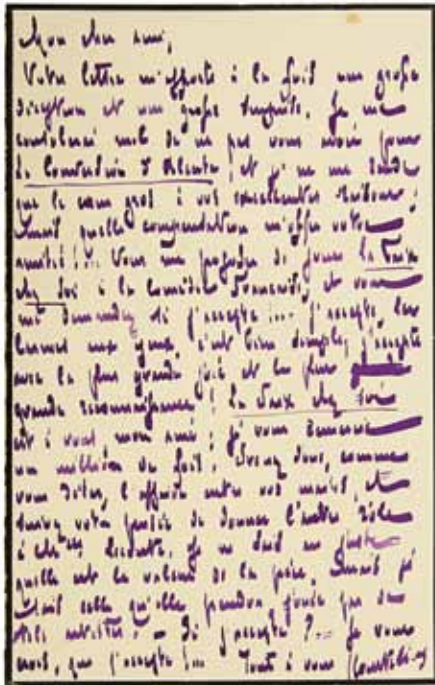 Mon cher ami,
Votre lettre m'apporte à la fois une grosse
déception et une grosse surprise. Je me
consolerai mal de ne pas vous avoir pour
la Conversion d'Alceste, et je ne me rends
que le cœur gros à vos excellentes raisons ;
mais quelle compensation m'offre votre
amitié !... Vous me proposez de jouer la Paix
chez soi à la Comédie Française, et vous
me demandez si j'accepte !... j'accepte, les
larmes aux yeux, c'est bien simple, j'accepte
avec la plus grande joie et la plus
grande reconnaissance ! La Paix chez soi
est à vous mon ami ; je vous remercie
un million de fois. Prenez donc, comme
vous dites, l'affaire entre vos mains, et
suivez votre pensée de donner l'autre rôle
à Leconte. Je ne sais au juste
quelle est la valeur de la pièce, mais je
sais celle qu'elle prendra jouée par de
tels artistes. — Si j'accepte ?... Je vous
crois, que j'accepte !... Tout à vous Courteline